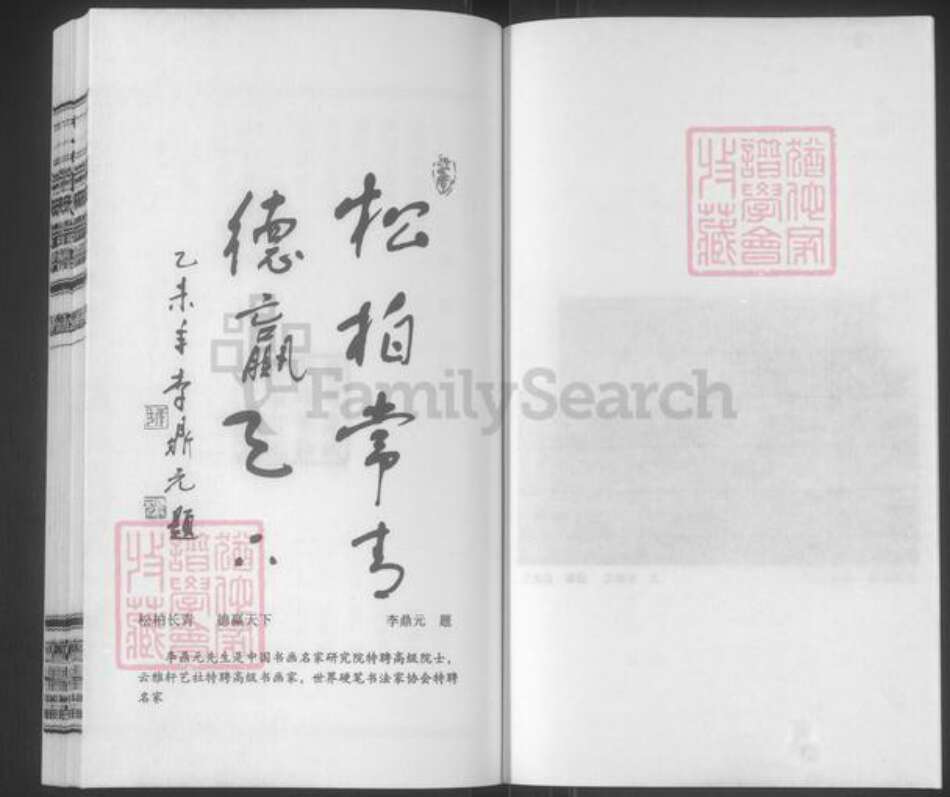 松柏常青
德赢天下
乙未年李鼎元题
松柏长青 德赢天下 李鼎元 题
李鼎元先生是中国书画名家研究院特聘高级院士，
云雅轩艺社特聘高级书画家，世界硬笔书法家协会特聘
名家
FamilySearch
猶他家
譜學會
收藏
猶他家
譜學會
收藏